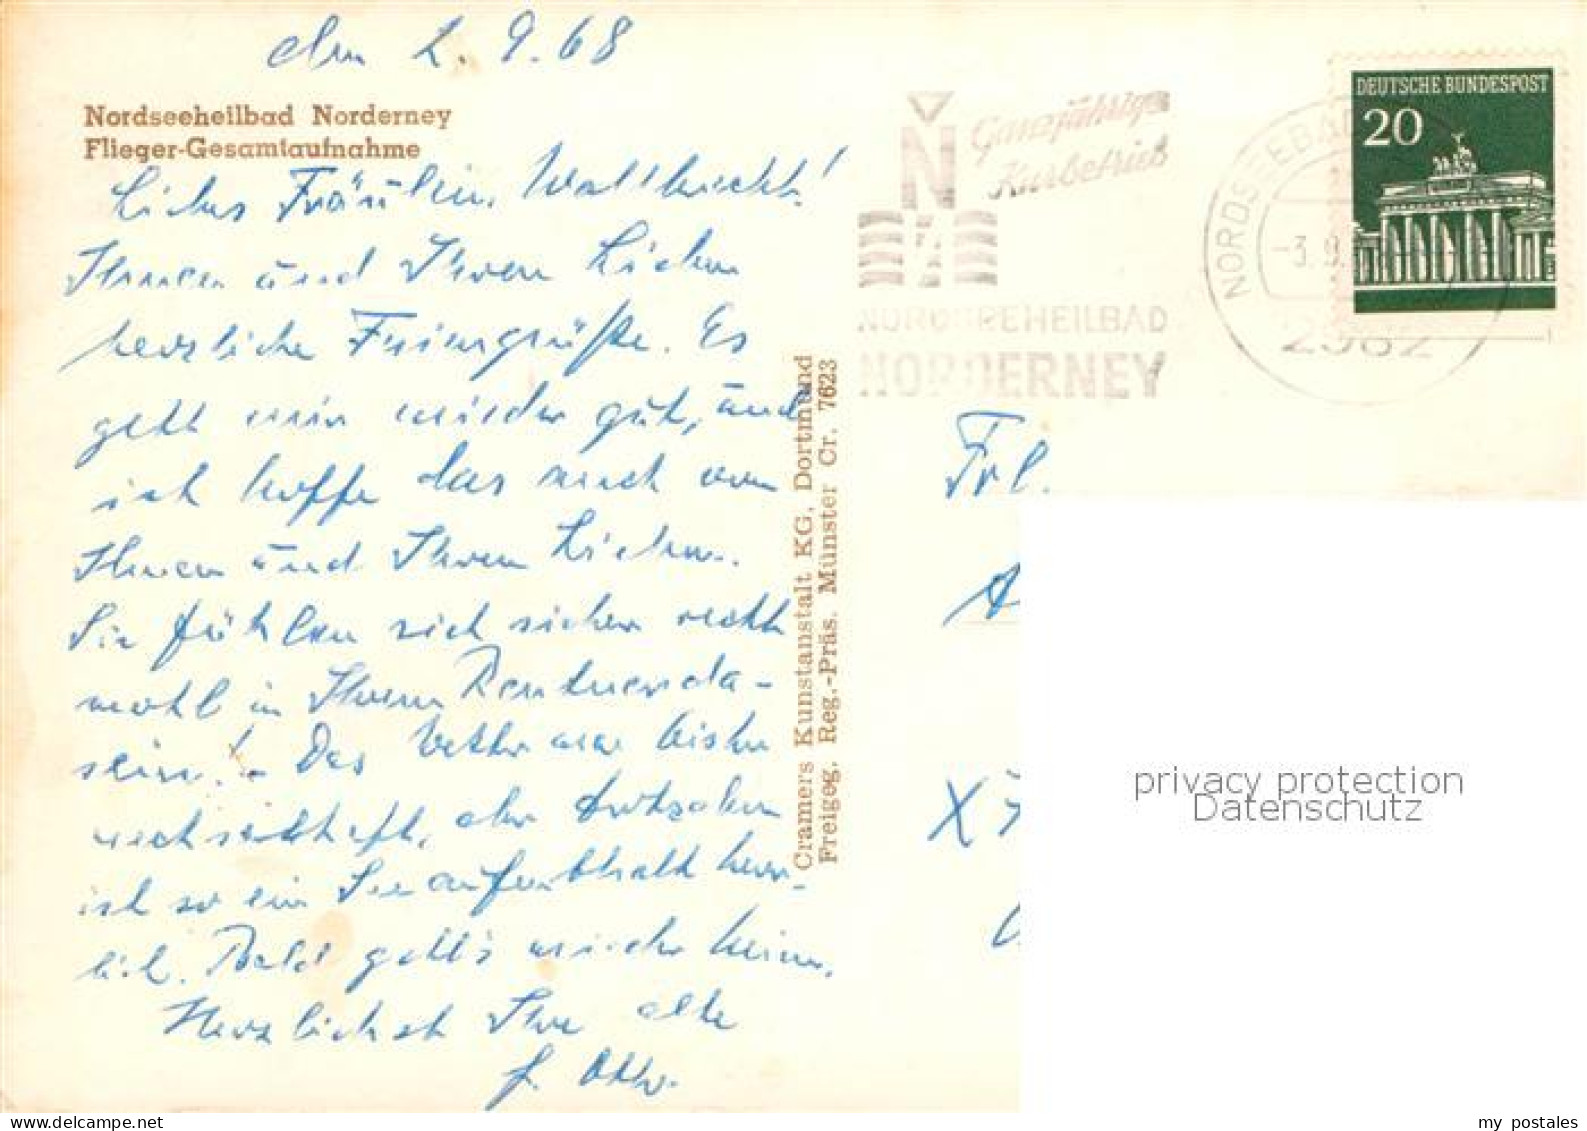 den 2. 9. 68
Nordseeheilbad Norderney
Flieger-Gesamtaufnahme
Liebes Fräulein Wallbrecht!
Ihnen und Ihren Lieben
herzliche Feriengrüße. Es
geht mir wieder gut, und
ich hoffe das auch von
Ihnen und Ihren Lieben.
Sie fühlen sich sicher recht
wohl in Ihrem Rentnerda-
sein! - Das Wetter war bisher
wechselhaft, aber trotzdem
ist so ein Seeaufenthalt herr-
lich. Bald geht's wieder heim.
Herzlichst Ihre alte
F. Otto.
Cramers Kunstanstalt KG, Dortmund
Freigeg. Reg.-Präs. Münster Cr. 7623
Ganzjähriger
Kurbetrieb
N
NORDSEEHEILBAD
NORDERNEY
NORDSEEBAD
-3.9.
2982
DEUTSCHE BUNDESPOST
20
Frl.
privacy protection
Datenschutz
my postales